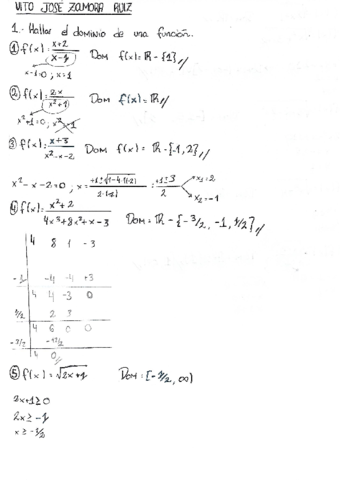 VITO JOSÉ ZAMORA RUIZ
1.- Hallar el dominio de una función.
① f(x) = x+2 / x-1 Dom f(x) = ℝ - {1} //
x-1=0 ; x=1
② f(x) = 2x / (x²+1) Dom f(x) = ℝ //
x²+1=0, x²=-1
③ f(x) = x+3 / x²-x-2 Dom f(x) = ℝ - {-1, 2} //
x²-x-2=0 ; x = +1±√1-4·1·(-2) / 2·1 = +1±3 / 2 x₁=2
x₂=-1
④ f(x) = x²+2 / 4x³+8x²+x-3 Dom = ℝ - {-3/2, -1, 1/2} //
4 8 1 -3
-1 -4 -4 +3
4 4 -3 0
1/2 2 3
4 6 0 0
-3/2
4 0
⑤ f(x) = √2x+1 Dom = [-1/2, ∞)
2x+1≥0
2x≥-1
x≥-1/2